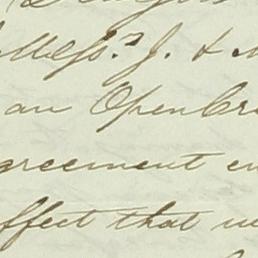 Messrs. J. &
an Open Cr
greement en
ffect that